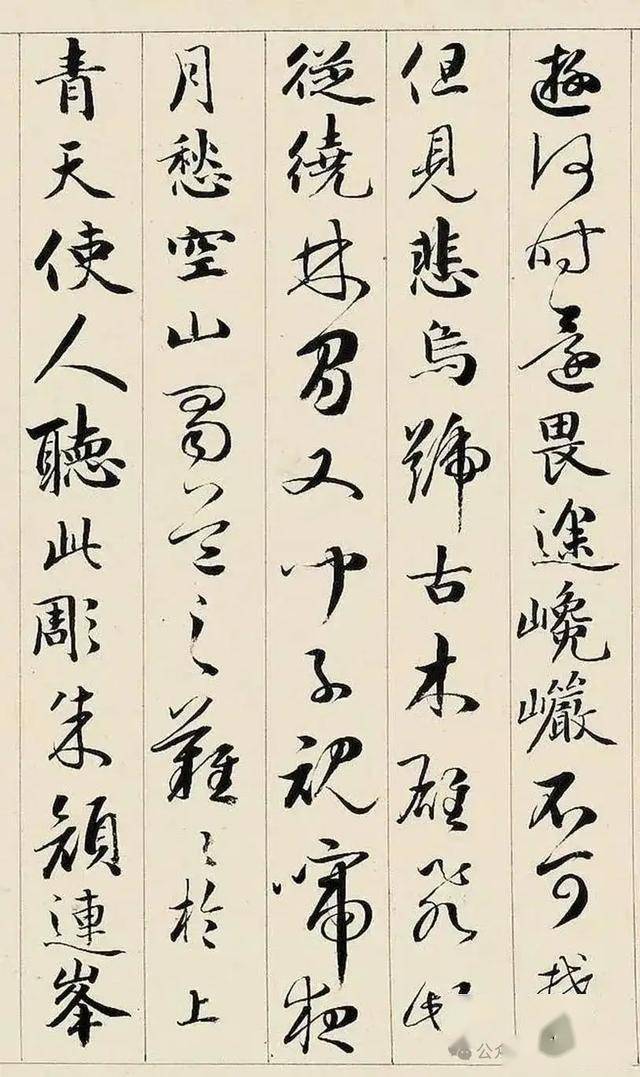 遊何时還畏途巉巖不可
但見悲鳥號古木雄飛
從繞林間又聞子規啼夜
月愁空山蜀道之難〻於上
青天使人聽此彫朱顏連峯